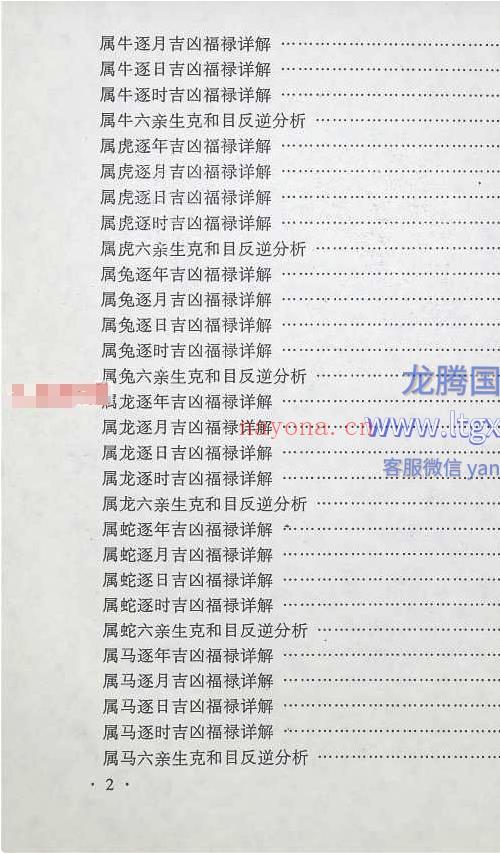 属牛逐月吉凶福禄详解 ……………………
属牛逐日吉凶福禄详解 ……………………
属牛逐时吉凶福禄详解 ……………………
属牛六亲生克和目反逆分析 ………………
属虎逐年吉凶福禄详解 ……………………
属虎逐月吉凶福禄详解 ……………………
属虎逐日吉凶福禄详解 ……………………
属虎逐时吉凶福禄详解 ……………………
属虎六亲生克和目反逆分析 ………………
属兔逐年吉凶福禄详解 ……………………
属兔逐月吉凶福禄详解 ……………………
属兔逐日吉凶福禄详解 ……………………
属兔逐时吉凶福禄详解 ……………………
属兔六亲生克和目反逆分析 ………………
龙腾国
属龙逐年吉凶福禄详解 ……………………
属龙逐月吉凶福禄详解 ……………………
nayona.cn
www.ltgx
属龙逐日吉凶福禄详解 ……………………
客服微信 yan
属龙逐时吉凶福禄详解 ……………………
属龙六亲生克和目反逆分析 ………………
属蛇逐年吉凶福禄详解 ……………………
属蛇逐月吉凶福禄详解 ……………………
属蛇逐日吉凶福禄详解 ……………………
属蛇逐时吉凶福禄详解 ……………………
属蛇六亲生克和目反逆分析 ………………
属马逐年吉凶福禄详解 ……………………
属马逐月吉凶福禄详解 ……………………
属马逐日吉凶福禄详解 ……………………
属马逐时吉凶福禄详解 ……………………
属马六亲生克和目反逆分析 ………………
· 2 ·